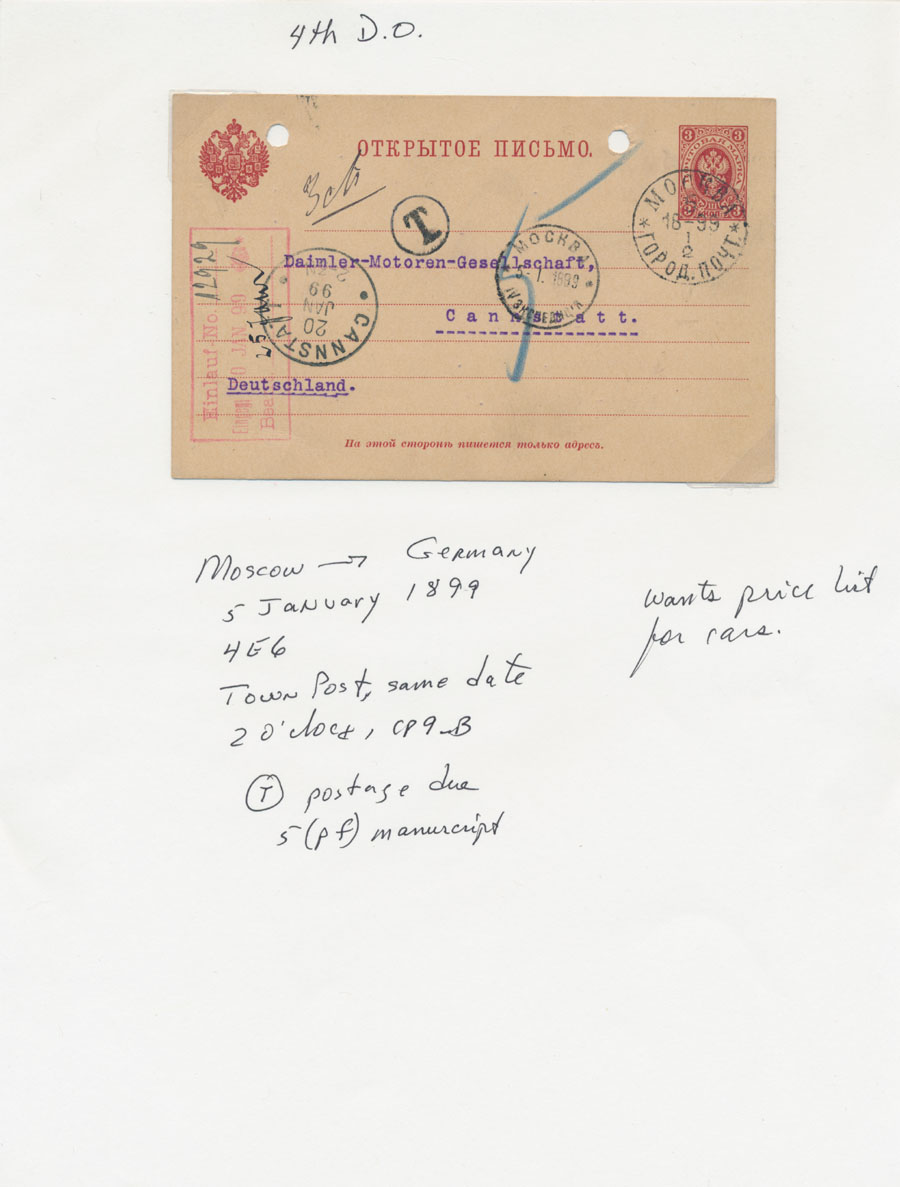 4th D.O.
ОТКРЫТОЕ ПИСЬМО.
3
МОСКВА
5
18-99
1
2
ГОРОД. ПОЧТ.
T
МОСКВА
5.1.1899
Daimler-Motoren-Gesellschaft,
Cannstatt.
Deutschland.
CANNSTATT
20
JAN
99
Einlauf-No. 12929
20 JAN 99
На этой сторонѣ пишется только адресъ.
Moscow → Germany
5 January 1899
4E6
Town Post, same date
2 o'clock, CP9-B
T postage due
5 (pf) manuscript
wants price list
for cars.